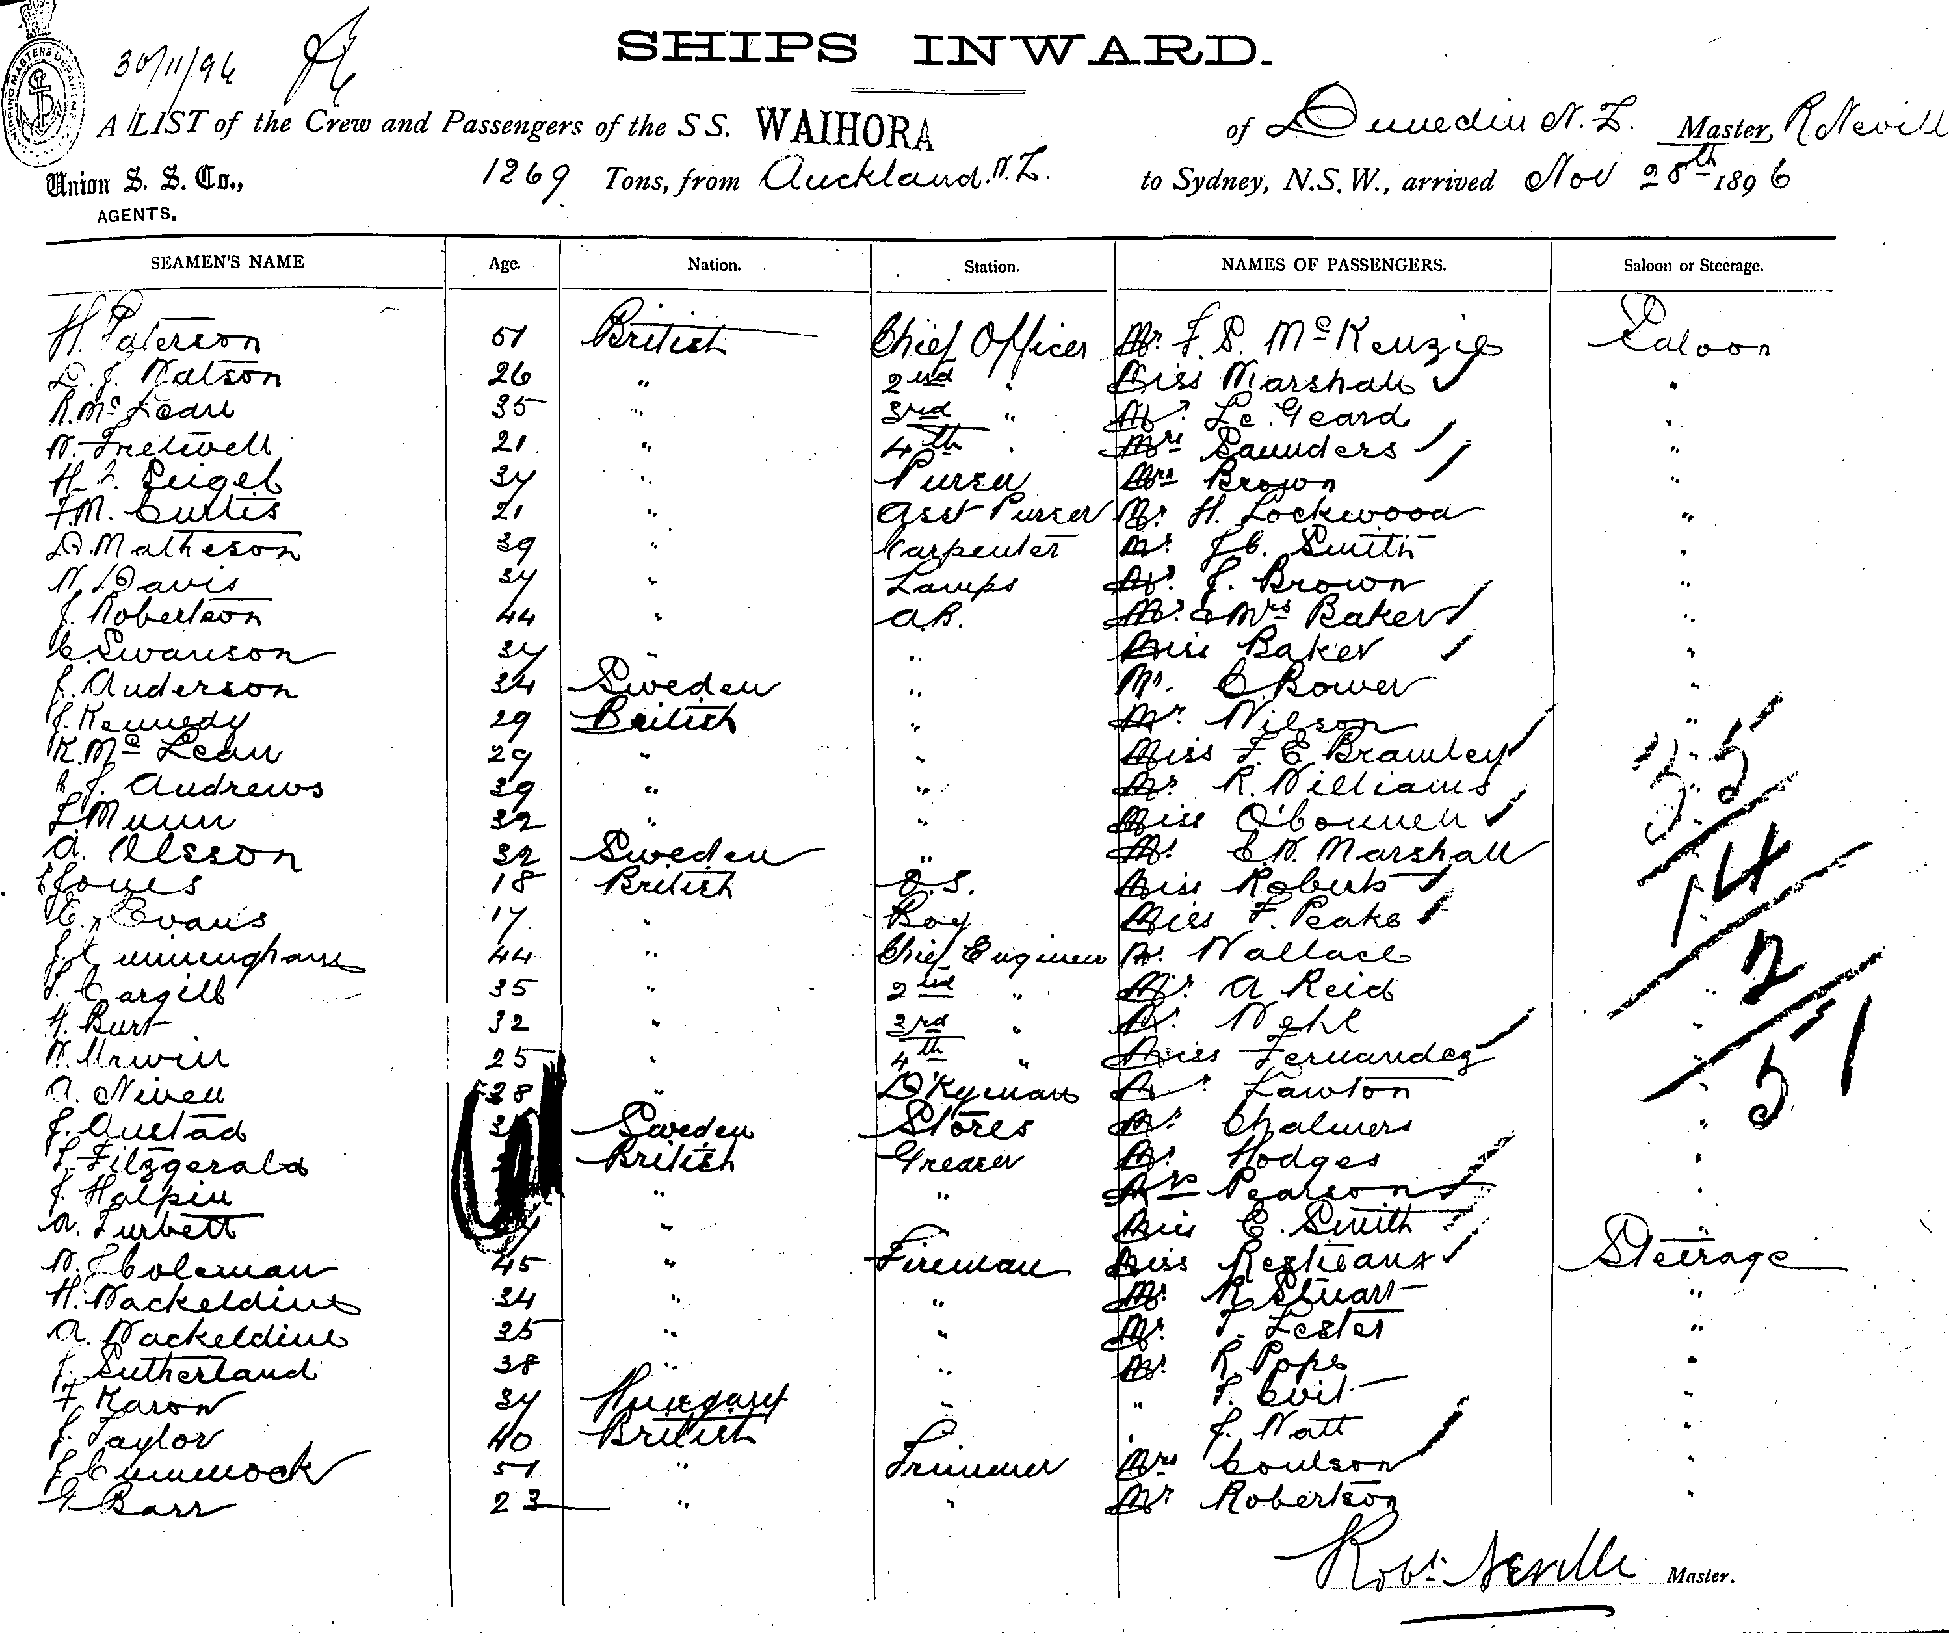 SHIPS INWARD.
30/11/96
A LIST of the Crew and Passengers of the S S. WAIHORA of Dunedin N. Z. Master, R Nevill
Union S. S. Co., 1269 Tons, from Auckland. N. Z. to Sydney, N.S.W., arrived Nov 28th 1896
AGENTS.
SEAMEN'S NAME Age. Nation. Station. NAMES OF PASSENGERS. Saloon or Steerage.
H. Paterson 51 British Chief Officer Mr. F. S. McKenzie Saloon
D. J. Watson 26 " 2nd " Miss Marshall "
R. McLean 35 " 3rd " Mr. Le. Geard "
W. Fretwell 21 " 4th " Mrs Saunders "
H. Seigel 34 " Purser Mrs Brown "
F. M. Curtis 21 " Asst Purser Mr. H. Lockwood "
D. Matheson 39 " Carpenter Mr. J. C. Smith "
W. Davis 34 " Lamps Mr. J. Brown "
J. Robertson 44 " A.B. Mr. & Mrs Baker "
C. Swanson 34 " " Miss Baker "
J. Anderson 34 Sweden " Mr. C. Bower "
J. Kennedy 29 British " Mr Wilson "
K. McLean 29 " " Miss F. E. Bramley
J. Andrews 39 " " Mr R. Williams 35
L. Munn 32 " " Miss O'Connell
A. Olsson 32 Sweden " Mr. E. W. Marshall 14
Jones 18 British O.S. Miss Roberts
C. Evans 17 " Boy Miss F. Peake
J. Cunningham 44 " Chief Engineer Mr. Wallace 2
Cargill 35 " 2nd " Mr. A Reid "
Burt 32 " 3rd " Mr. Wehl "
W. Urwin 25 " 4th " Miss Fernandez " 51
A. Niven 38 " D'kyman Mr. Lawton "
J. Austad Sweden Stores Mr. Chalmers "
Fitzgerald British Greaser Mr. Hodges "
J. Halpin " " Mrs Pearson "
A. Turbett " Miss E. Smith "
W. J. Coleman 45 " Fireman Miss Restieaux Steerage
H. Wackeldine 34 " " Mr. R Stuart "
A. Wackeldine 35 " " Mr. T. Lester "
J. Sutherland 38 " " Mr. R Pope "
F Karon 34 Hungary " " T. Evit "
J. Taylor 40 British " J. Watt "
J Cummock 51 " Trimmer Mrs Coulson "
G Barr 23 " " Mr Robertson "
Robt. Neville Master.